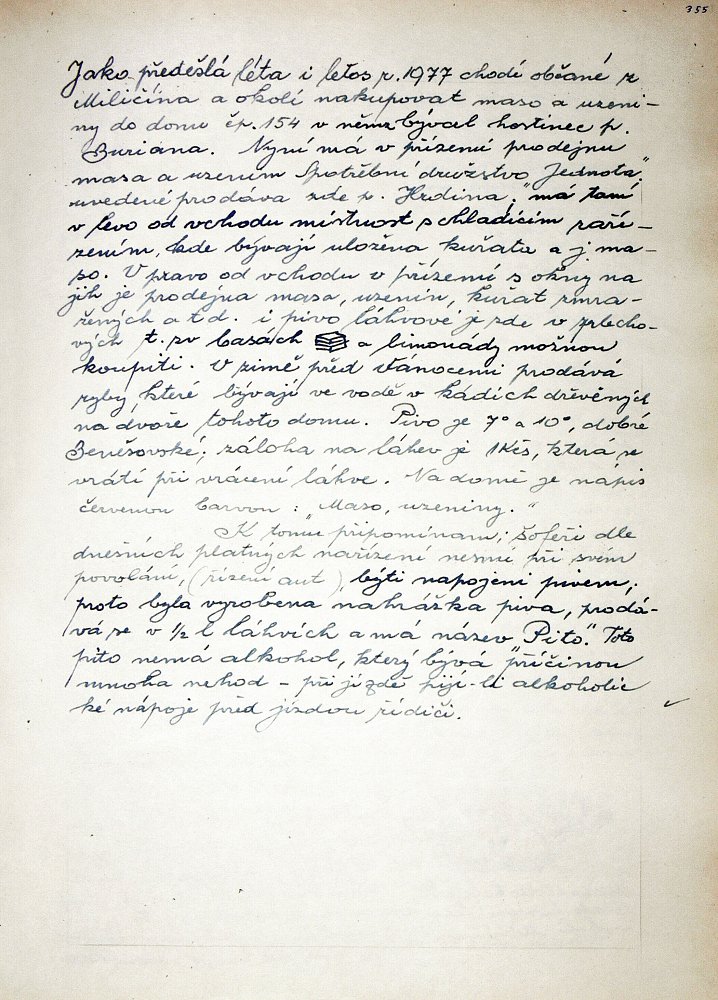 355
Jako předešlá léta i letos r. 1977 chodí občané z
Miličína a okolí nakupovat maso a uzeni-
ny do domu čp. 154 v němž býval hostinec p.
Buriana. Nyní má v přízemí prodejnu
masa a uzenin Spotřební družstvo Jednota."
uvedené prodává zde p. Hrdina; má tam
v levo od vchodu místnost s chladícím zaří-
zením, kde bývají uložena kuřata a j. ma-
so. V pravo od vchodu v přízemí s okny na
jih je prodejna masa, uzenin, kuřat zmra-
žených a t d. i pivo láhvové je zde v plecho-
vých t. zv basách a limonády možnou
koupiti. V zimě před Vánocemi prodává
ryby, které bývají ve vodě v kádích dřevěných
na dvoře tohoto domu. Pivo je 7° a 10°, dobré
Benešovské; záloha na láhev je 1 Kčs, která se
vrátí při vrácení láhve. Na domě je nápis
červenou barvou: "Maso, uzeniny."
K tomu připomínám; šoféři dle
dnešních platných nařízení nesmí při svém
povolání, (řízení aut), býti napojeni pivem;
proto byla vyrobena nahrážka piva, prodá-
vá se v ½ l láhvích a má název "Pito". Toto
pito nemá alkohol, který bývá příčinou
mnoha nehod - při jízdě pijí-li alkoholic
ké nápoje před jízdou řidiči.